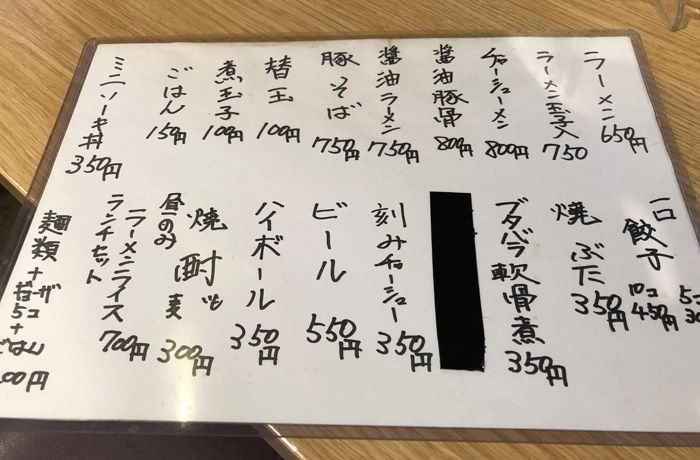 ラーメン 650円
ラーメン玉子入 750
チャーシューメン 800円
醤油豚骨 800円
醤油ラーメン 750円
豚そば 750円
替玉 100円
煮玉子 100円
ごはん 150円
ミニソーキ丼 350円
一口餃子
10コ 450円
5コ
焼ぶた 350円
ブタバラ軟骨煮 350円
刻みチャーシュー 350円
ビール 550円
ハイボール 350円
焼酎 麦 300円
昼のみ
ラーメンライス
ランチセット 700円
麺類+ギョーザ5コ+ごはん
00円